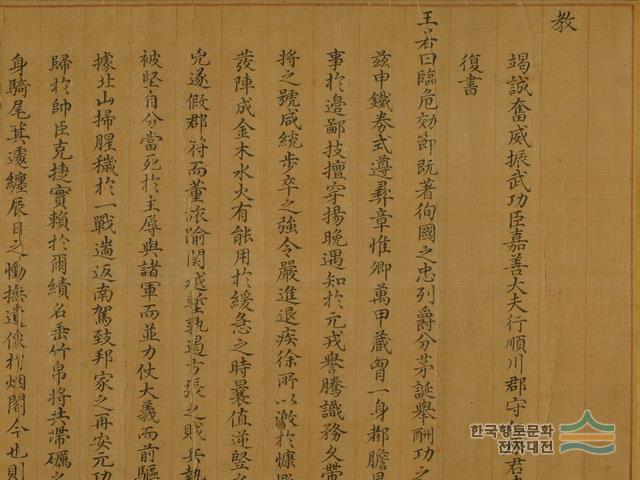 教
竭誠奮威振武功臣嘉善大夫行順川郡守
復書
王若曰臨危効節旣著徇國之忠列爵分茅誕擧酬功之
玆申鐵券式遵彛章惟卿萬甲藏胷一身都膽
事於邊鄙技擅穿揚晩遇知於元戎譽騰識務久帶
將之號咸統步卒之强令嚴進退疾徐所以激於慷
發陣成金木水火有能用於緩急之時曩值逆竪
兇遂假郡符而董旅踰関越塹孰遏方張之賊兵執
被堅自分當死於主辱與諸軍而並力仗大義而前驅
據北山掃腥穢於一戰遄返南駕致邦家之再安元功
歸於帥臣克捷實賴於爾績名垂竹帛將共帶礪之
身騎尾箕遽纏辰日之慟撫遺像於烟閣今也則
한국향토문화
전자대전